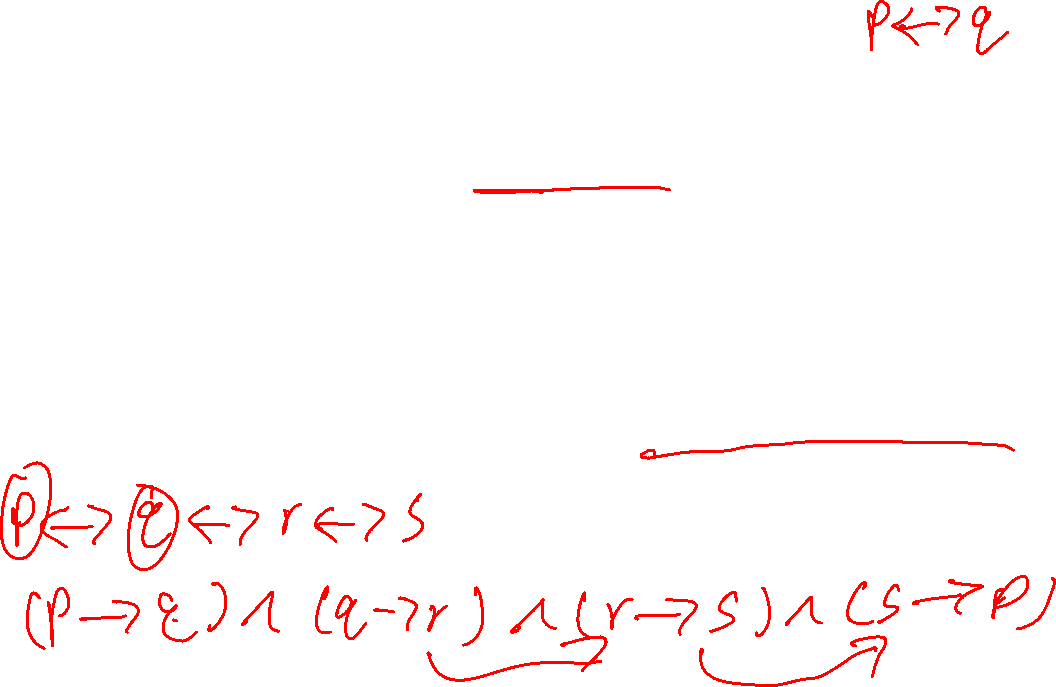 p ↔ q
p ↔ q ↔ r ↔ s
(p → q) ∧ (q → r) ∧ (r → s) ∧ (s → p)